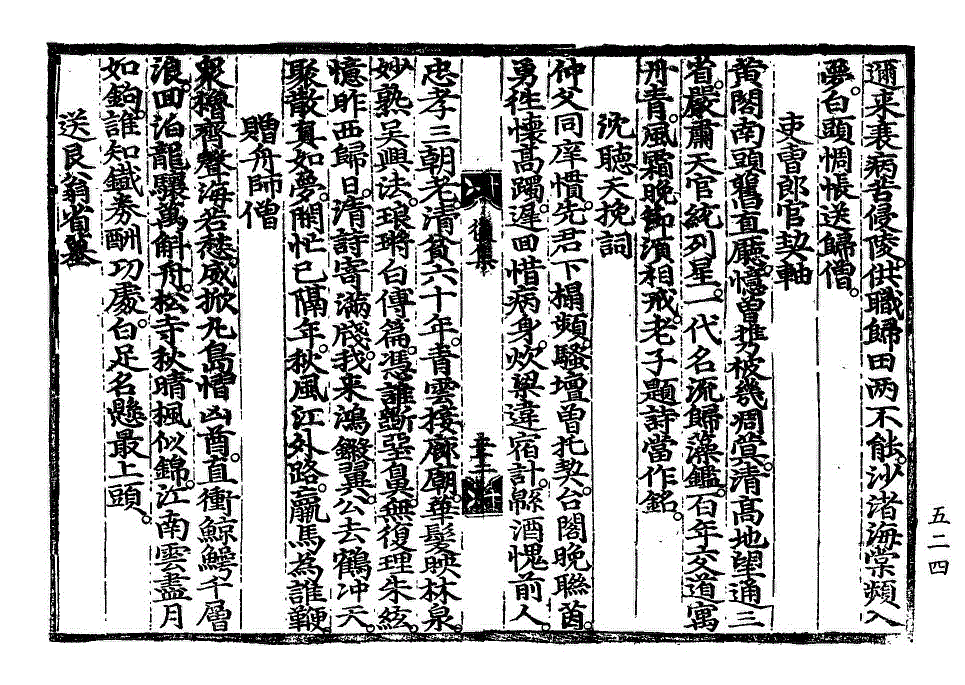 邇來衰病苦侵陵。供職歸田兩不能。沙渚海棠頻入
夢。白頭惆悵送歸僧。
吏曹郎官契軸
黃閣南頭舊直廳。憶曾携被幾凋蓂。清高地望通三
省。嚴肅天官統列星。一代名流歸藻鑑。百年交道寓
丹靑。風霜晩節須相戒。老子題詩當作銘。
沈聽天挽詞
仲父同庠慣。先君下榻頻。騷壇曾托契。台閣晩聯茵。
勇往懷高躅。遲回惜病身。炊粱違宿計。緜酒愧前人。
忠孝三朝老。淸貧六十年。靑雲接廊廟。華髮映林泉。
妙熟吳興法。琅琦白傅篇。馮誰斲堊鼻。無復理朱絃。
憶昨西歸日。淸詩寄滿牋。我來鴻鎩翼。公去鶴冲天。
聚散眞如夢。閑忙已隔年。秋風江外路。羸馬爲誰鞭。
贈舟師僧
衆櫓齊聲海若愁。威掀九島慴凶酋。直衝鯨鰐千層
浪。回泊龍驤萬斛舟。松寺秋晴楓似錦。江南雲盡月
如鉤。誰知鐵券酬功處。白足名懸最上頭。
送良翁省墓
五二四